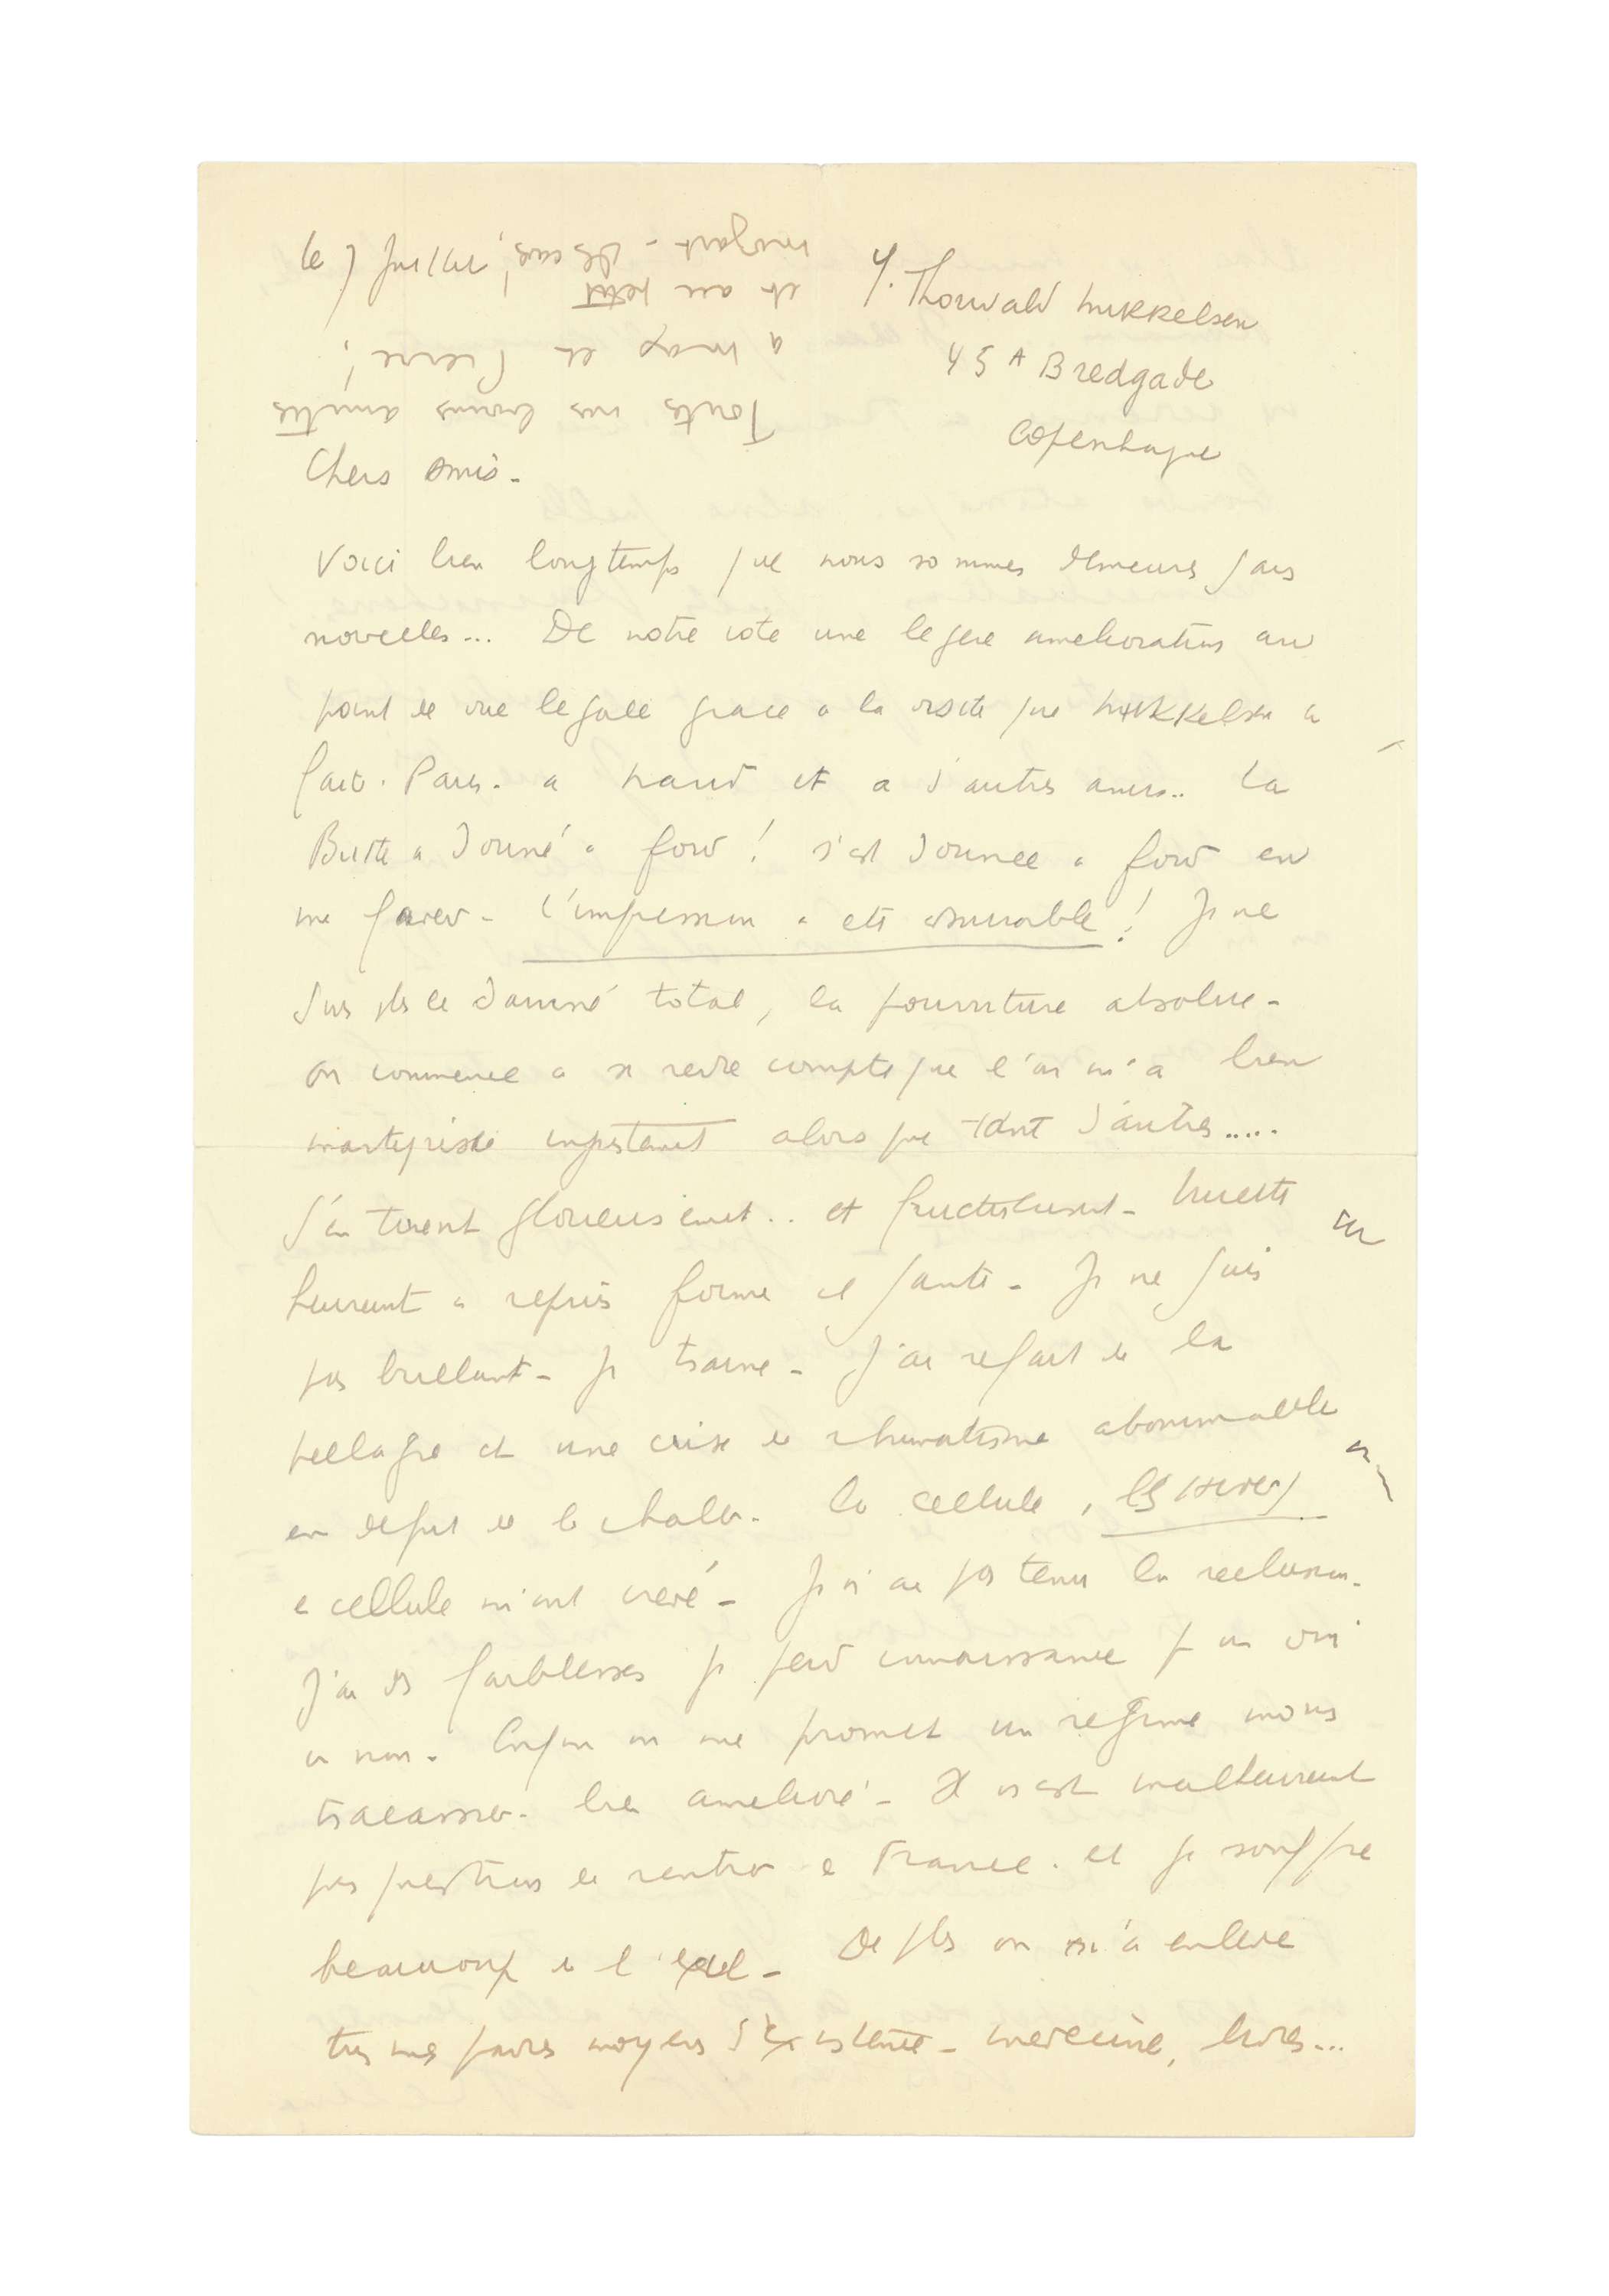 le 7 Juillet
Y. Thorwald Mikkelsen
45 A Bredgade
Copenhague
Toutes nos bonnes amitiés
à Max et Pierre !
et au petit
Mozart -
Chers Amis -
Voici bien longtemps que nous sommes demeurés sans
nouvelles... De notre coté une legere amelioration au
point de vue legale grace a la visite que Mikkelsen a
fait. Paris. a et a d'autres amis.. La
a donné a fond ! s'est donnee a fond en
ma faveur - L'impression a été ! Je ne
suis pls le damné total, la pourriture absolue -
On commence a se rendre compte que l'on m'a bien
martyrisé alors que tant d'autres.....
s'en tirent glorieusement.. et fructueusement - Lucette
heureusement a repris forme et santé - Je ne suis
pas brillant - Je traine - J'ai refait de la
pellagre et une crise de rhumatisme abominable
en depit de la chaleur. La cellule,
de cellule m'ont crevé - Je n'ai pas tenu la reclusion.
J'ai des faiblesses je perd connaissance p un oui
un non. Enfin on me promet un regime moins
tracassier. bien amelioré - Il n'est malheureusement
pas question de rentrer en France. et je souffre
beaucoup de l'exil - De pls on m'a enlevé
ts mes pauvres moyens d'existence - medecine, livres...